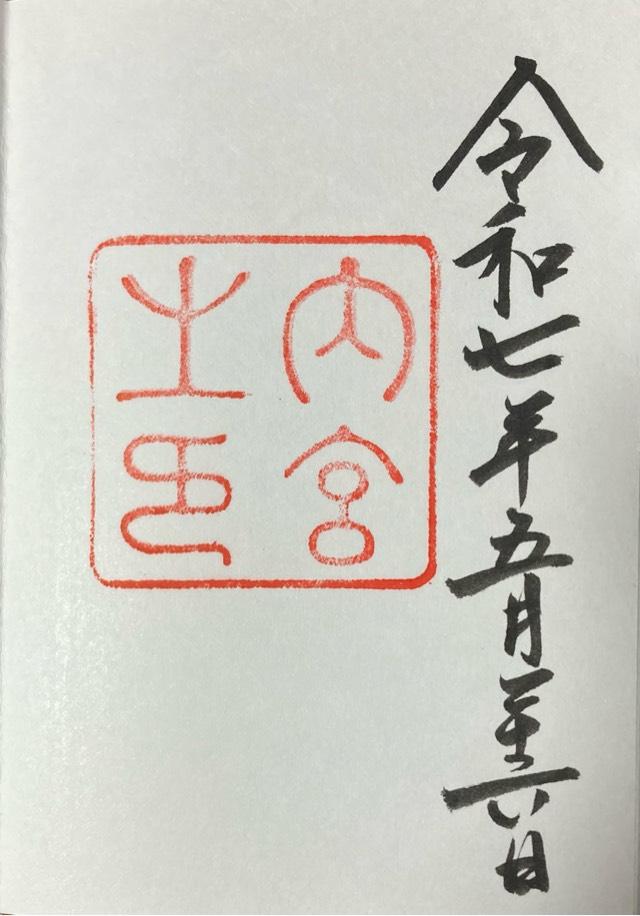 令和七年五月二十六日
内宮
之印